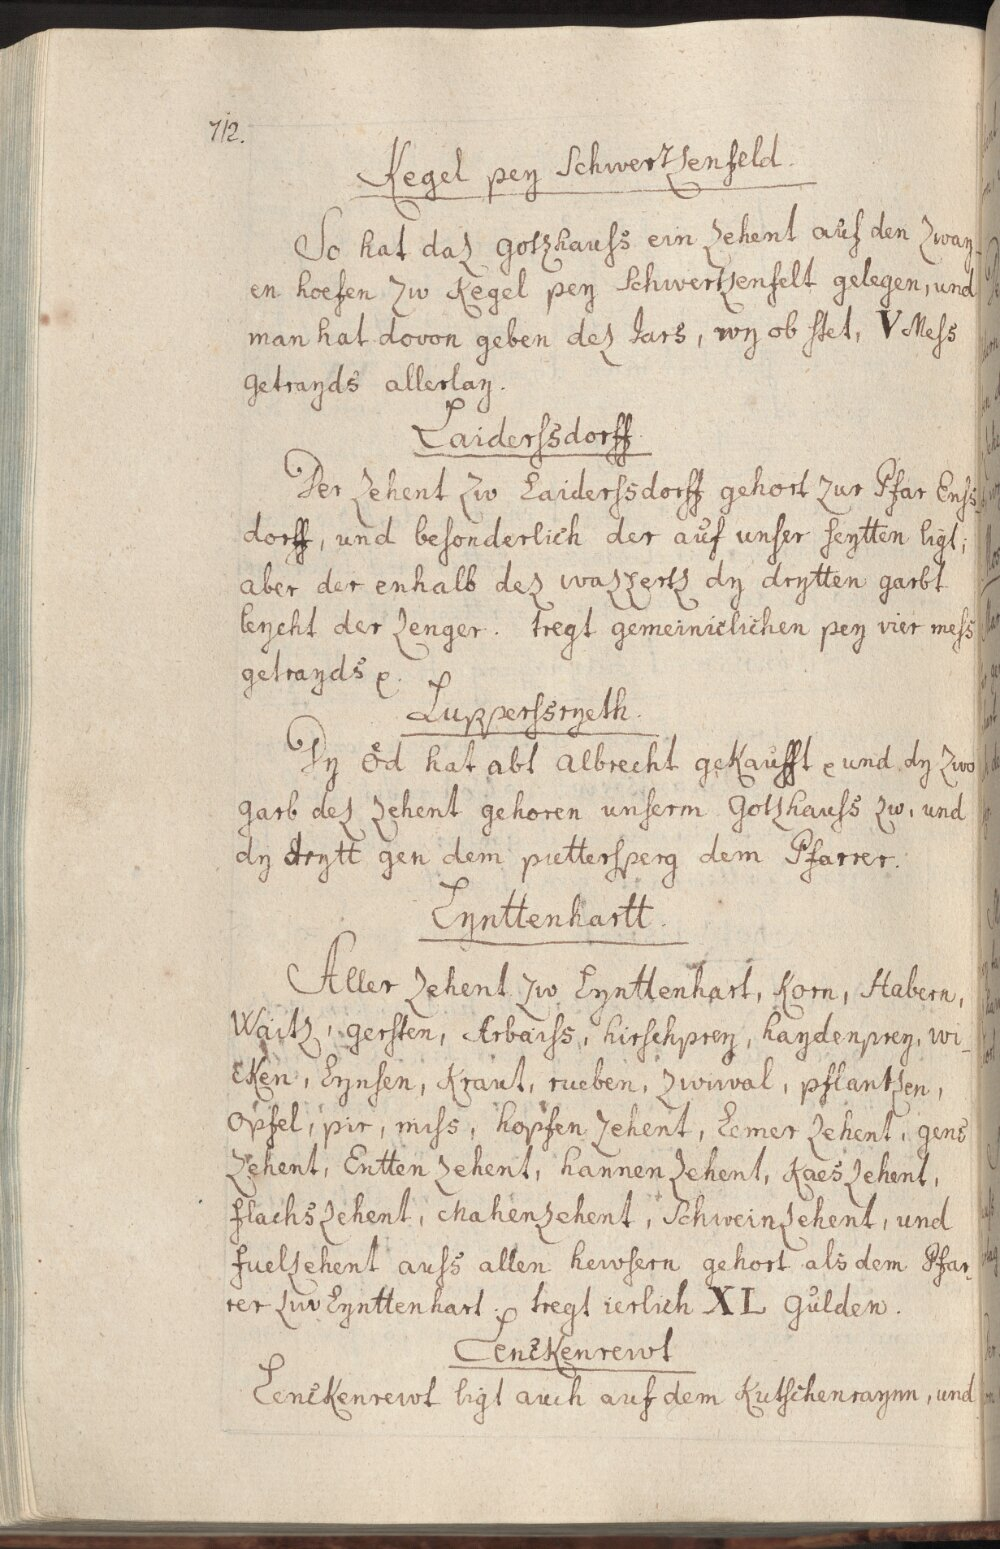 712.
Kegel pey Schwertzenfeld.
So hat daz gotzhauss ein zehent auf den zway
en hoefen zw Kegel pey Schwertzenfelt gelegen, und
man hat dovon geben dez Jars, wy ob stet, V Mess
getrayds allerlay.
Laiderssdorff
Der zehent zw Laiderssdorff gehort zur Pfar Enss
dorff, und besonderlich der auf unser seytten ligt;
aber der enhalb dez wazzertz dy drytten garbt
leycht der zenger. tregt gemeiniclichen pey vier mess
getrayds
Lupperssryeth.
Dy öd hat abt Albrecht gekaufft und dy zwo
garb dez zehent gehoren unserm Gotzhauss zw, und
dy drytt gen dem puettersperg dem Pfarrer.
Lynttenhartt.
Aller zehent zw Lynttenhart, Korn, Habern,
Waitz, gersten, Arbaiss, hirschprey, haydenprey, wi-
cken, Lynsen, Kraut, rueben, zwival, pflantzen,
Opfel, pir, niss, hopfen zehent, Lemer zehent, gens
zehent, Entten zehent, hannen zehent, Kaes zehent,
flachs zehent, Mahenzehent, Schweinzehent, und
fuelzehent auss allen hewsern gehort als dem Pfar-
rer zw Lynttenhart. tregt ierlich XL Gulden.
Lenckenrewt
Lenckenrewt ligt auch auf dem Kutschenraynn, und